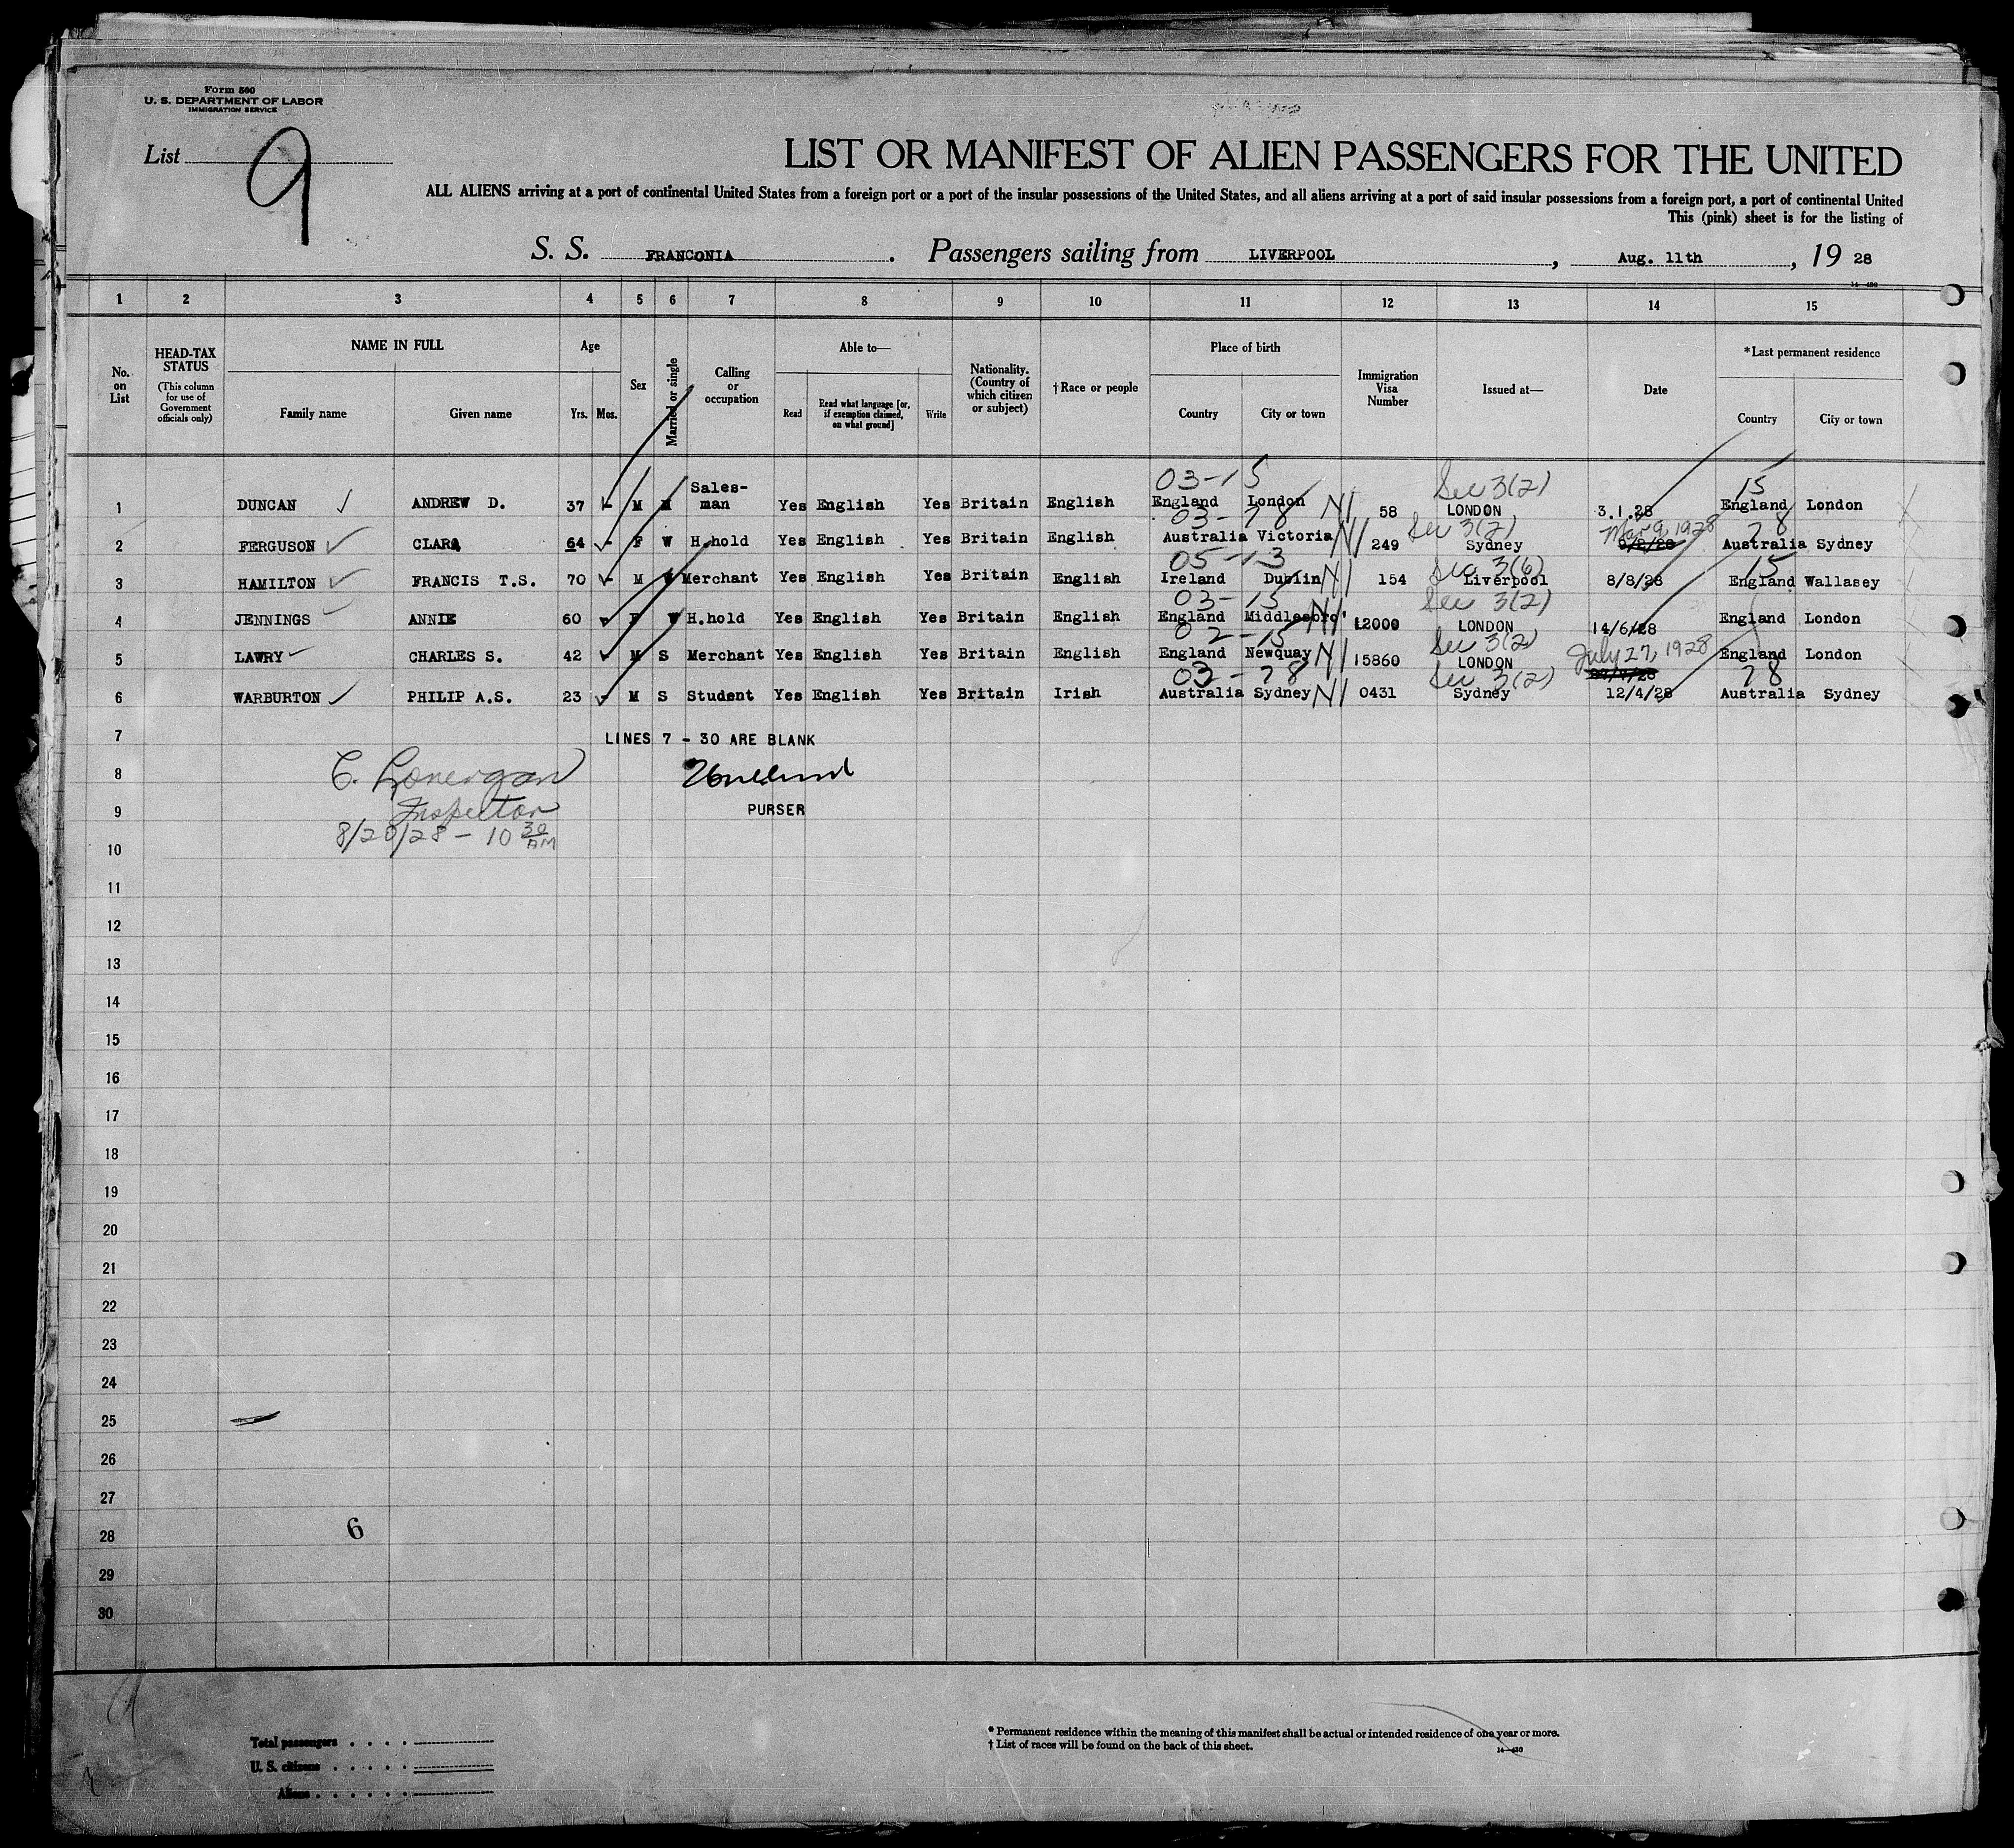 Form 500
U. S. DEPARTMENT OF LABOR
IMMIGRATION SERVICE
List 9
LIST OR MANIFEST OF ALIEN PASSENGERS FOR THE UNITED
ALL ALIENS arriving at a port of continental United States from a foreign port or a port of the insular possessions of the United States, and all aliens arriving at a port of said insular possessions from a foreign port, a port of continental United
This (pink) sheet is for the listing of
S. S. FRANCONIA. Passengers sailing from LIVERPOOL, Aug. 11th, 19 28
14—430
1 2 3 4 5 6 7 8 9 10 11 12 13 14 15
No. on List
HEAD-TAX STATUS (This column for use of Government officials only)
NAME IN FULL
Family name Given name
Age
Yrs. Mos.
Sex
Married or single
Calling or occupation
Able to—
Read Read what language [or, if exemption claimed, on what ground] Write
Nationality. (Country of which citizen or subject)
†Race or people
Place of birth
Country City or town
Immigration Visa Number
Issued at—
Date
*Last permanent residence
Country City or town
03-15 Sec 3(2) 15
1 DUNCAN ANDREW D. 37 - M M Sales-man Yes English Yes Britain English England London N/ 58 LONDON 3.1.28 England London
03-78 Sec 3(2) Mar 9, 1928 78
2 FERGUSON CLARA 64 - F W H.hold Yes English Yes Britain English Australia Victoria N/ 249 Sydney 9/2/28 Australia Sydney
05-13 Sec 3(6) 15
3 HAMILTON FRANCIS T.S. 70 - M Merchant Yes English Yes Britain English Ireland Dublin N/ 154 Liverpool 8/8/28 England Wallasey
03-15 Sec 3(2)
4 JENNINGS ANNIE 60 F W H.hold Yes English Yes Britain English England Middlesbro' N/ 12000 LONDON 14/6/28 England London
02-15 Sec 3(2) July 27, 1928
5 LAWRY CHARLES S. 42 M S Merchant Yes English Yes Britain English England Newquay N/ 15860 LONDON England London
03-78 Sec 3(2) 78
6 WARBURTON PHILIP A.S. 23 - M S Student Yes English Yes Britain Irish Australia Sydney N/ 0431 Sydney 12/4/28 Australia Sydney
7 LINES 7 - 30 ARE BLANK
8 C. Lonergan
Inspector
9 PURSER
8/20/28 - 10 30 AM
10
11
12
13
14
15
16
17
18
19
20
21
22
23
24
25
26
27
6
28
29
30
Total passengers
U. S. citizens
Aliens
* Permanent residence within the meaning of this manifest shall be actual or intended residence of one year or more.
† List of races will be found on the back of this sheet.
14—430